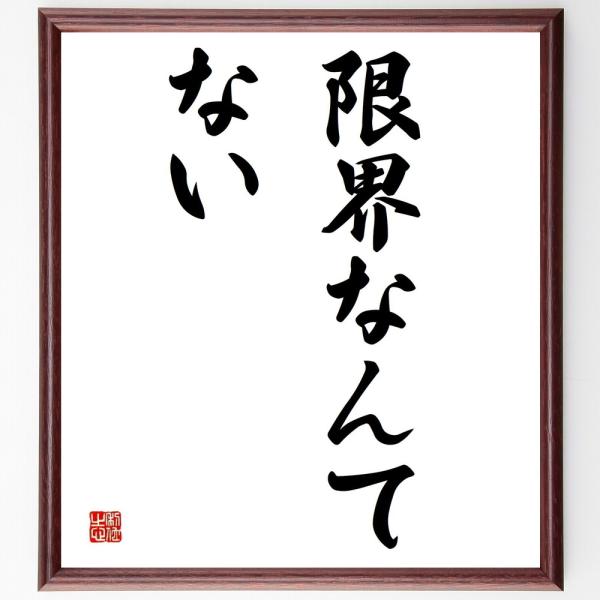 限界なんて
ない